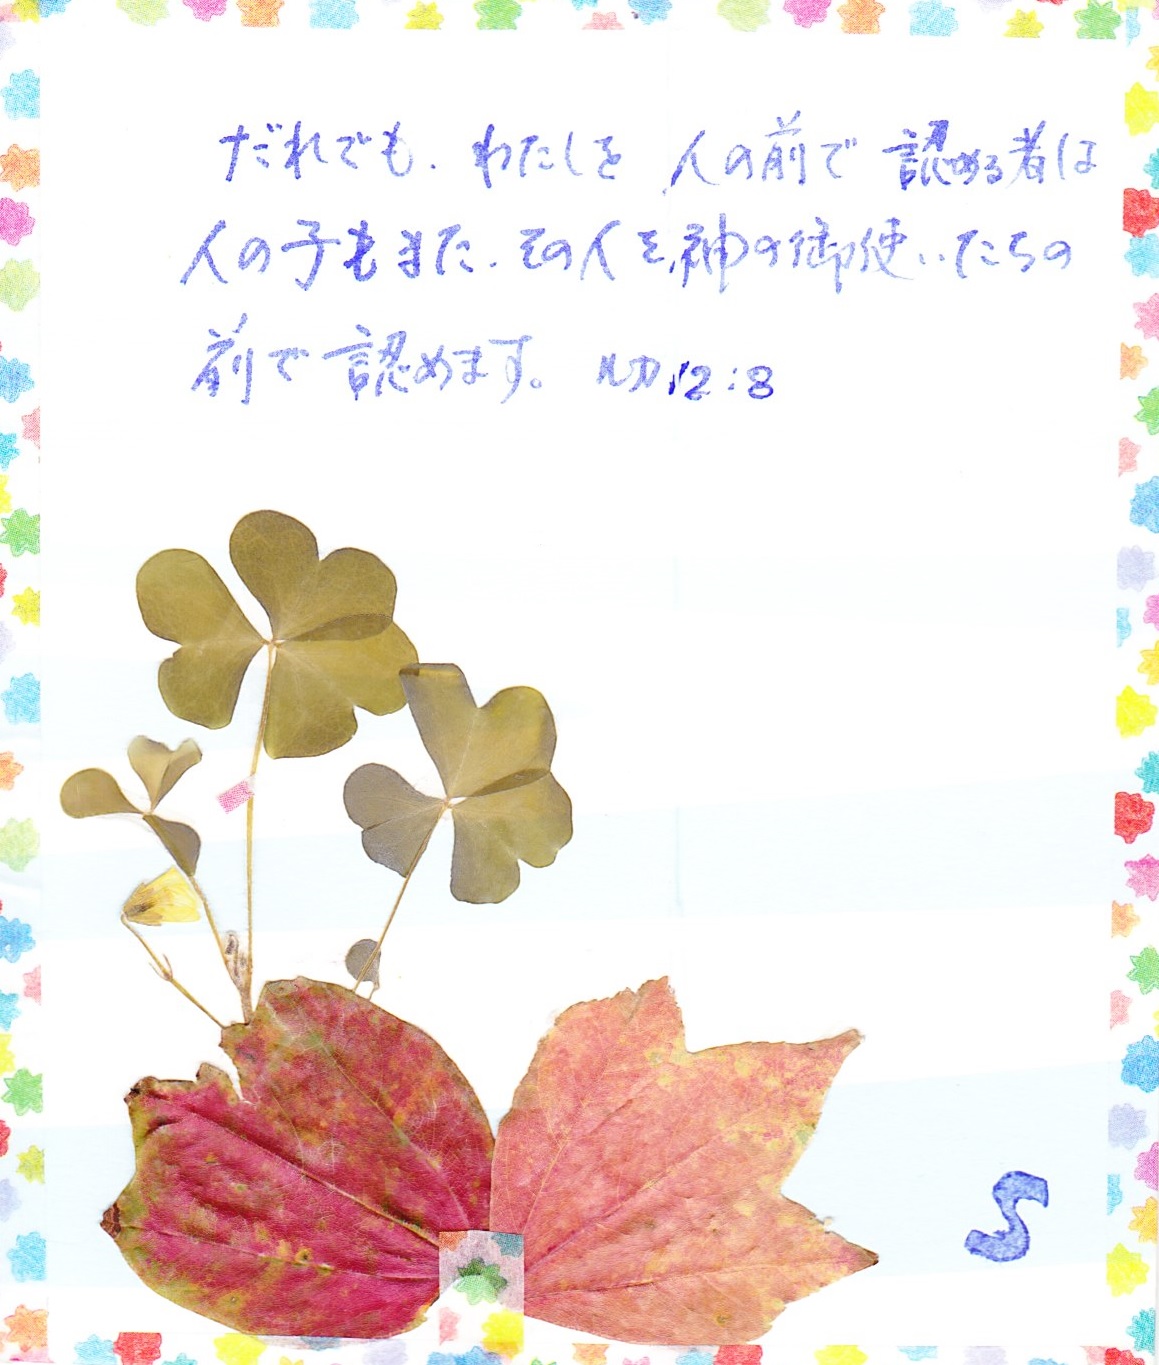 だれでも、わたしを 人の前で 認める者は
人の子もまた、その人を、神の御使いたちの
前で認めます。 ルカ12:8
S